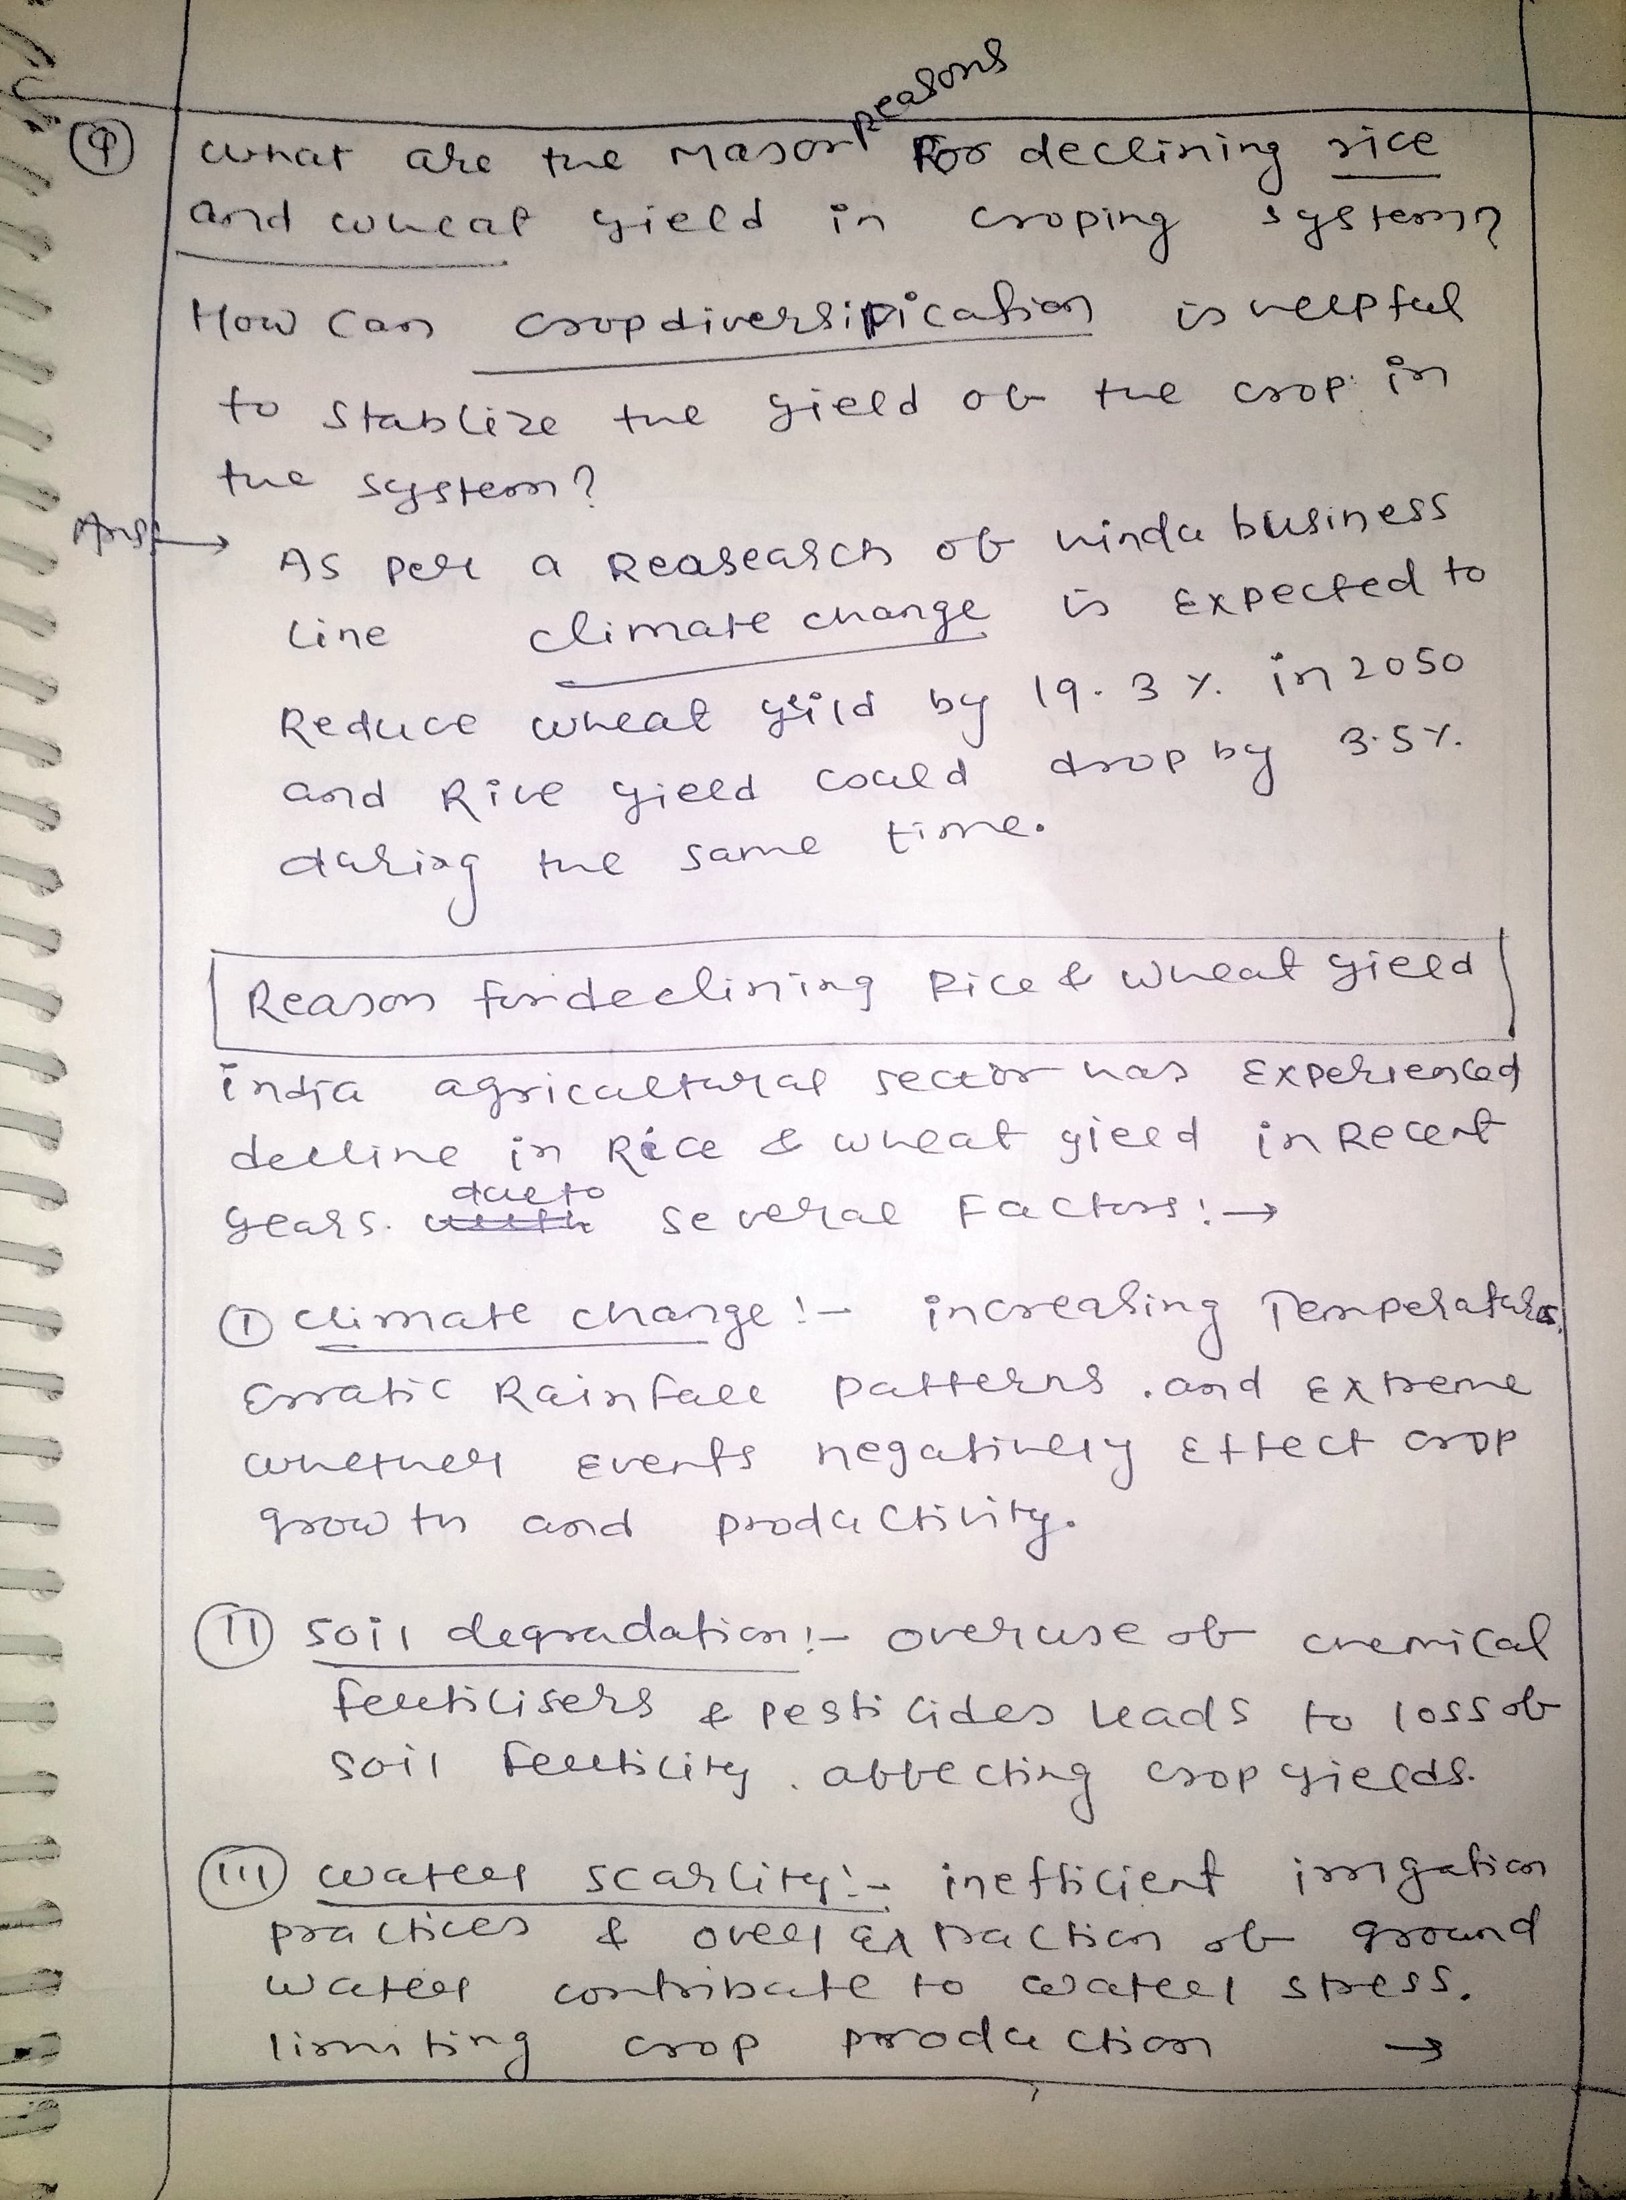 ④ What are the Masor reasons For declining rice
and wheat yield in croping system?
How can crop diversification is helpful
to stablize the yield of the crop in
the system?
Ans → As per a Reasearch of hindu business
line climate change is Expected to
Reduce wheat yeild by 19.3 % in 2050
and Rice yield could drop by 3.5%.
during the same time.
Reason for declining Rice & wheat yield
india agricultural sector has Experienced
decline in Rice & wheat yield in Recent
years. due to several Factors :→
① climate change :- increasing Temperatures,
Erratic Rainfall patterns, and Extreme
whether Events negatively Effect crop
growth and productivity.
(II) soil degradation :- overuse of chemical
fertilisers & pesticides leads to loss of
soil fertility, affecting crop yields.
(III) water scarcity :- inefficient irrigation
practices & over Extraction of ground
water contribute to water stress,
limiting crop production →